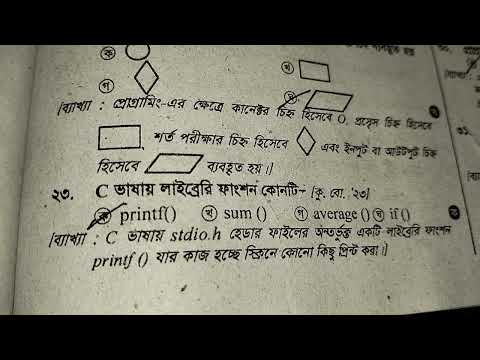 ব্যবহৃত হয়
৩০.
ক
খ
[ব্যাখ্যা :
গ
[ব্যাখ্যা : প্রোগ্রামিং-এর ক্ষেত্রে কানেক্টর চিহ্ন হিসেবে O, প্রসেস চিহ্ন হিসেবে
, শর্ত পরীক্ষার চিহ্ন হিসেবে এবং ইনপুট বা আউটপুট চিহ্ন
৩১.
হিসেবে ব্যবহৃত হয়।]
২৩. C ভাষায় লাইব্রেরি ফাংশন কোনটি– [কু. বো. '২৩]
ক printf() খ sum () গ average () ঘ if ()
[ব্যাখ্যা : C ভাষায় stdio.h হেডার ফাইলের অন্তর্ভুক্ত একটি লাইব্রেরি ফাংশন
printf () যার কাজ হচ্ছে স্ক্রিনে কোনো কিছু প্রিন্ট করা।]